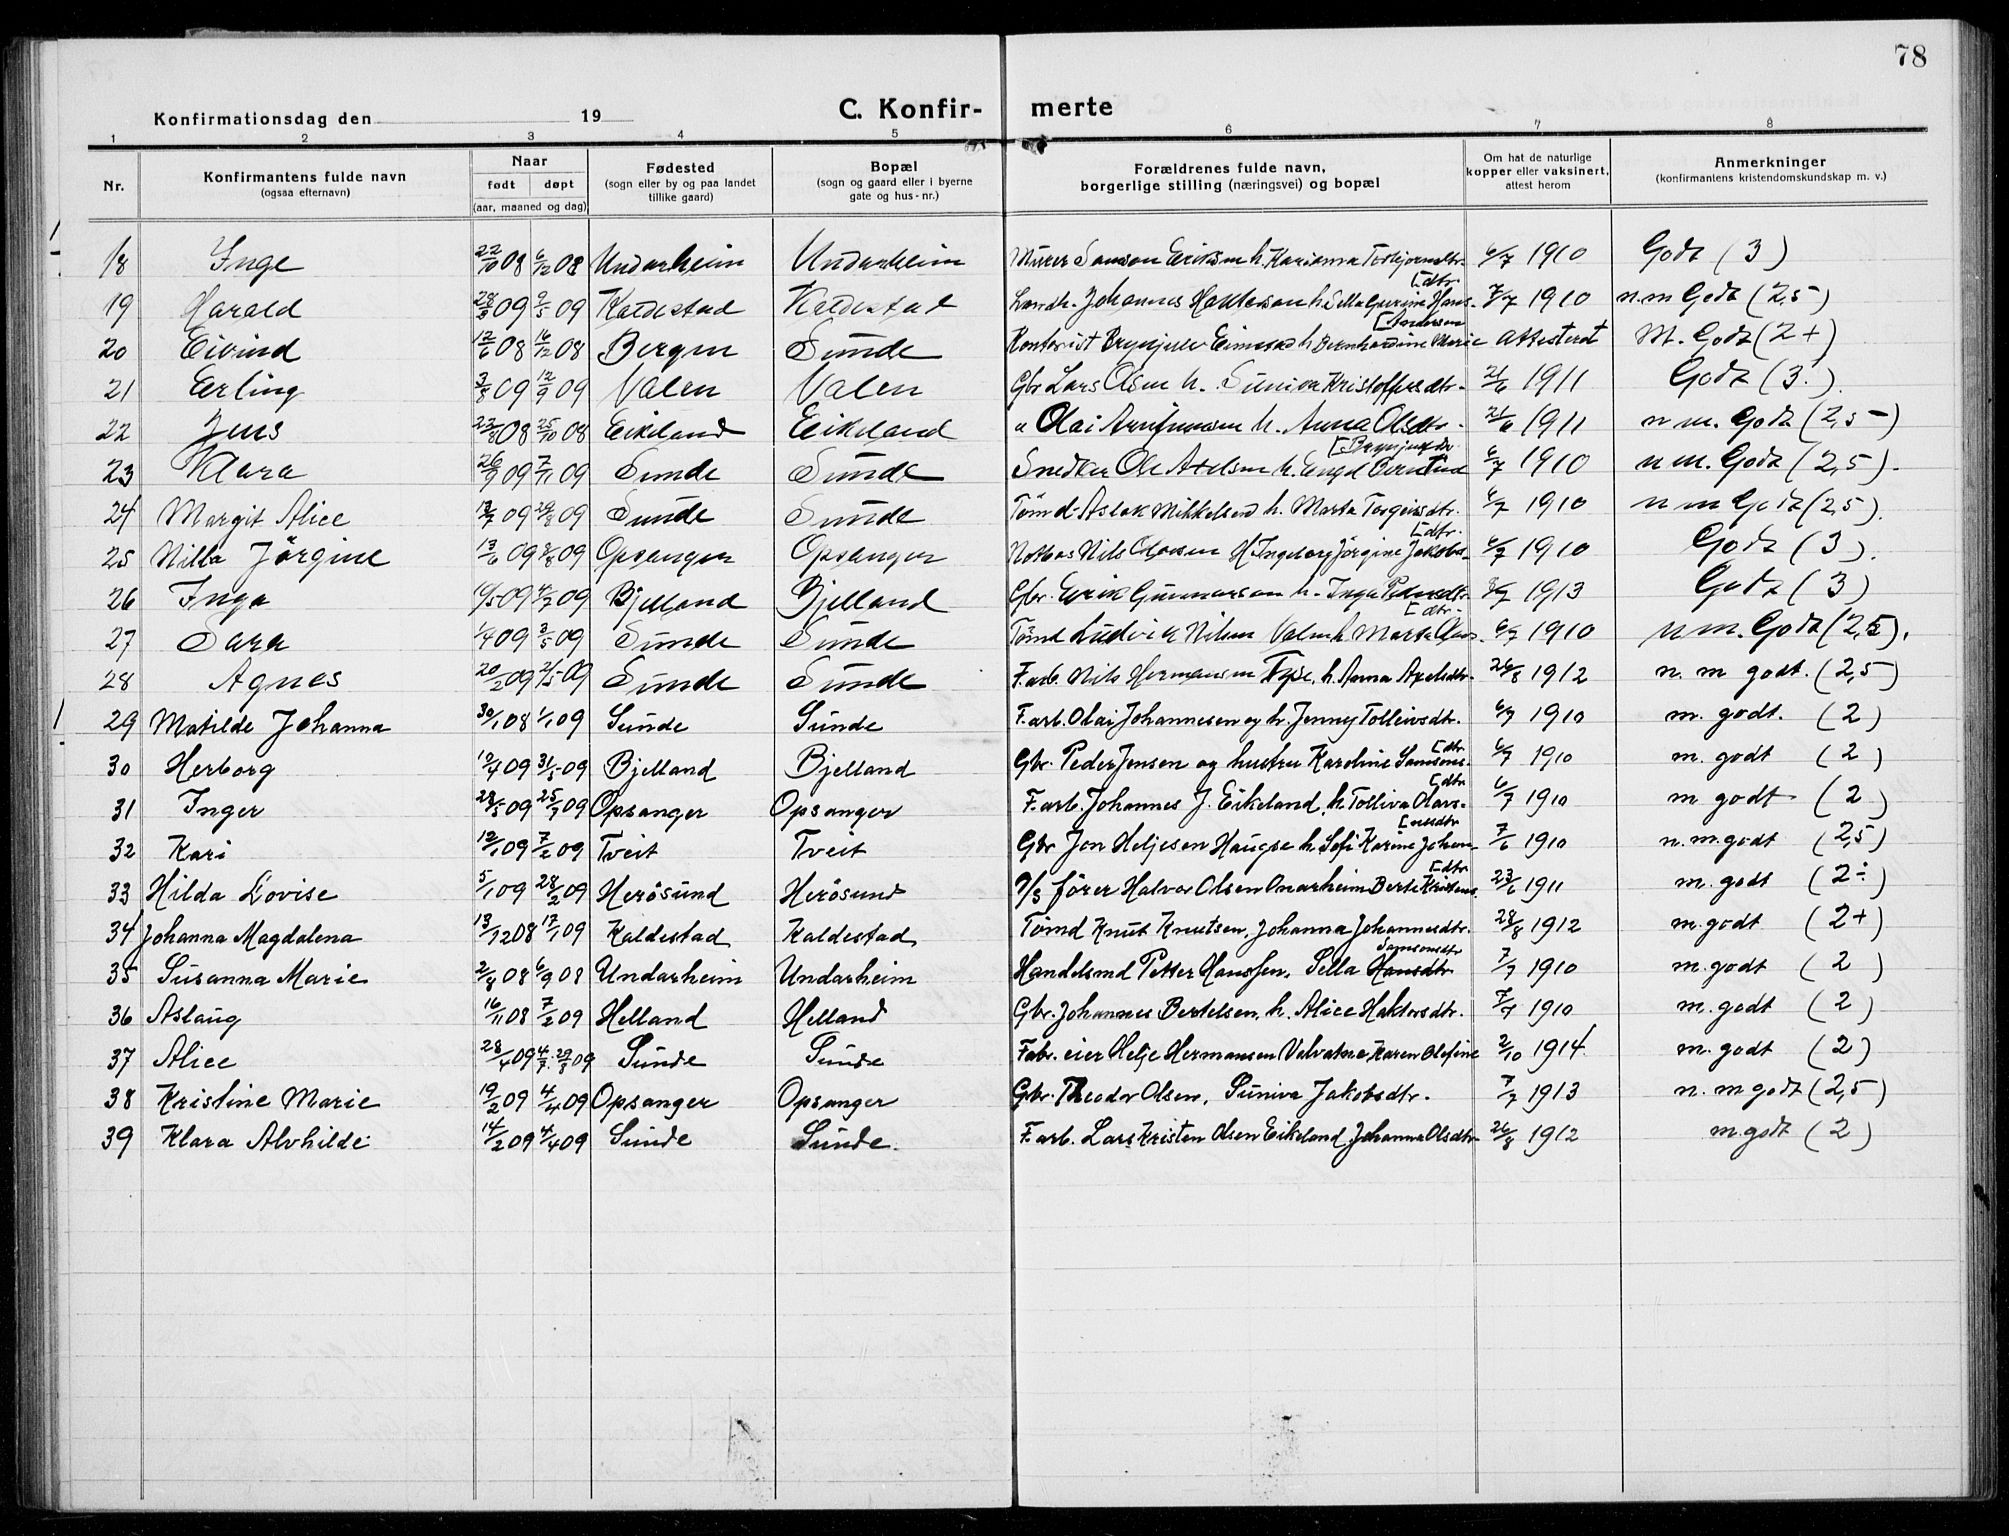 78
Konfirmationsdag den 19
C. Konfir- merte
1 2 3 4 5 6 7 8
Nr.
Konfirmantens fulde navn
(ogsaa efternavn)
Naar
født døpt
(aar, maaned og dag)
Fødested
(sogn eller by og paa landet
tillike gaard)
Bopæl
(sogn og gaard eller i byerne
gate og hus-nr.)
Forældrenes fulde navn,
borgerlige stilling (næringsvei) og bopæl
Om hat de naturlige
kopper eller vaksinert,
attest herom
Anmerkninger
(konfirmantens kristendomskundskap m. v.)
18 Inge 22/10 08 6/12 08 Undarheim Undarheim Murer Samson Eriksen h. Karianna Torbjørnsdtr. 6/7 1910 Godt (3)
19 Harald 09 2/5 09 Kaldestad Kaldestad Johannes Haktorson h. Sella Gurine Hans- [dtr. 7/7 1910 n.m Godt (2,5)
20 Eivind 12/6 08 16/12 08 Bergen Sunde Kontorist Brynjulv h Bernhardine Marie [Andersen Attesteret M. Godt (2+)
21 Erling 3/8 09 12/9 09 Valen Valen Gbr Lars Olsen h. Suniva Kristoffersdtr. 21/6 1911 Godt (3.)
22 Jens 23/8 08 25/10 08 Eikeland Eikeland " Olai Arnfinnsen h. Anna Olsdtr. 21/6 1911 n m. Godt (2,5-)
23 Klara 26/9 09 7/11 09 Sunde Sunde Snedker Ole Axelsen h. Engel Berntine [Brynjulfsdtr 6/7 1910 n m. Godt (2,5).
24 Margit Alice 09 29/8 09 Sunde Sunde Tömd. Aslak Mikkelsen h. Marta Torgeirsdtr. 6/7 1910 n m Godt (2,5).
25 Nilla Jörgine 13/6 09 8/8 09 Opsanger Opsanger Notbas Nils Olavsen H. Ingeborg Jørgine Jakobs- [dtr. 6/7 1910 Godt (3).
26 Inga 09 4/7 09 Bjelland Bjelland Gbr. Erik Gunnarson h. Inga Pedersdtr. 8/7 1913 Godt (3)
27 Sara 1/4 09 3/5 09 Sunde Sunde Tömd Ludvik Nilsen Valen h Marta Olas- [dtr. 6/7 1910 n m. Godt (2,5).
28 Agnes 20/2 09 2/5-09 Sunde Sunde F.arb. Nils Hermansen h. Anna Axelsdtr. 26/8 1912 n. m godt. (2,5)
29 Matilde Johanna 30/1 08 1/1 09 Sunde Sunde F.arb. Olai Johannesen og h. Jenny Tolleivsdtr. 6/7 1910 m. godt. (2)
30 Herborg 19/4 09 31/5-09 Bjelland Bjelland Gbr. Peder Jensen og hustru Karoline Samsons- [dtr. 6/7 1910 m. godt (2)
31 Inger 28/5 09 25/7 09 Opsanger Opsanger F.arb. Johannes J. Eikeland, h. Tolliva Olavs- [dtr 6/7 1910 m godt (2)
32 Kari 12/1 09 7/2 09 Tveit Tveit Gbr Jon Heljesen Haugse h. Sofi Karine Johan- [nesdtr 7/6 1910 n. m. godt (2,5)
33 Hilda Lovise 5/1 09 28/2 09 Herösund Herösund D/s fører Halvor Olsen Onarheim Berte Kristens [dtr 23/6 1911 m. godt (2÷)
34 Johanna Magdalena 13/12 08 17/1 09 Kaldestad Kaldestad Tömd Knut Knutsen, Johanna Johannesdtr. 28/8 1912 m. godt (2+)
35 Susanna Marie 2/8 08 6/9 08 Undarheim Undarheim Handelsmd Petter Hanssen, Sella Hansdtr Samsonsdtr 7/7 1910 m. godt (2)
36 Aslaug 16/11 08 7/2 09 Helland Helland Gbr. Johannes Bertelsen, h. Alice Haktorsdtr. 7/7 1910 m. godt (2)
37 Alice 28/4 09 4/7. 29/8 09 Sunde Sunde Fabr. eier Helje Hermansen Valvatne Karen Olefine 2/10 1914 m. godt (2)
38 Kristine Marie 19/2 09 4/4 09 Opsanger Opsanger Gbr. Theodor Olsen, Suniva Jakobsdtr. 7/7 1913 n. m godt (2,5)
39 Klara Alvhilde 14/2 09 4/4 09 Sunde Sunde. F. arb. Lars Kristen Olsen Eikeland Johanna Olsdtr. 26/8 1912 m. godt (2)